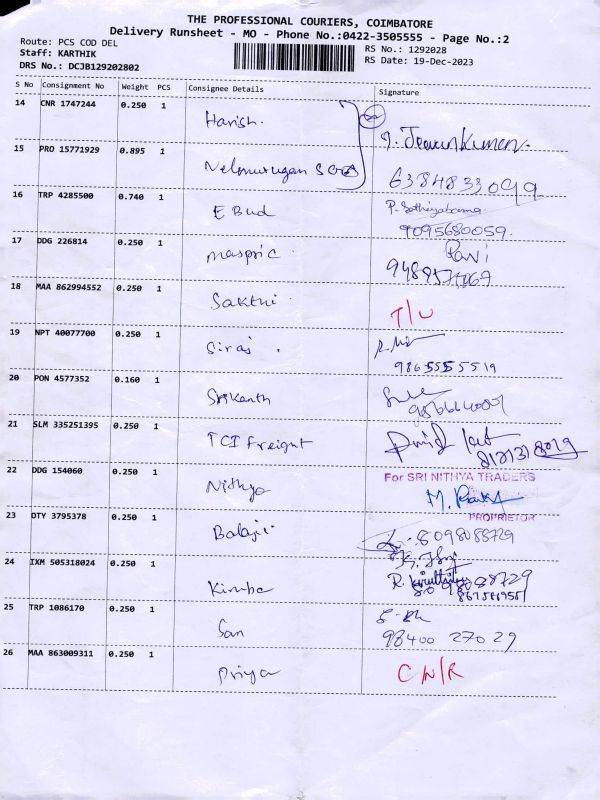 THE PROFESSIONAL COURIERS, COIMBATORE
Delivery Runsheet - MO - Phone No.:0422-3505555 - Page No.:2
Route: PCS COD DEL
RS No.: 1292028
Staff: KARTHIK
RS Date: 19-Dec-2023
DRS No.: DCJB129202802
S No Consignment No Weight PCS Consignee Details Signature
14 CNR 1747244 0.250 1 Harish.
J. Jeevan Kumar.
15 PRO 15771929 0.895 1 Nelmurugan
6384833049
16 TRP 4285500 0.740 1 E Bud
9095680059.
17 DDG 226814 0.250 1 maspric
Rani
18 MAA 862994552 0.250 1 Sakthi
T/U
19 NPT 40077700 0.250 1 Siraj
9865555519
20 PON 4577352 0.160 1 Srikanth
21 SLM 335251395 0.250 1 TCI Freight
22 DDG 154060 0.250 1 Nithya
For SRI NITHYA TRADERS
PROPRIETOR
23 DTY 3795378 0.250 1 Balaji
8098088729
24 IXM 505318024 0.250 1
25 TRP 1086170 0.250 1 San
98400 27029
26 MAA 863009311 0.250 1 Priya
C N/R